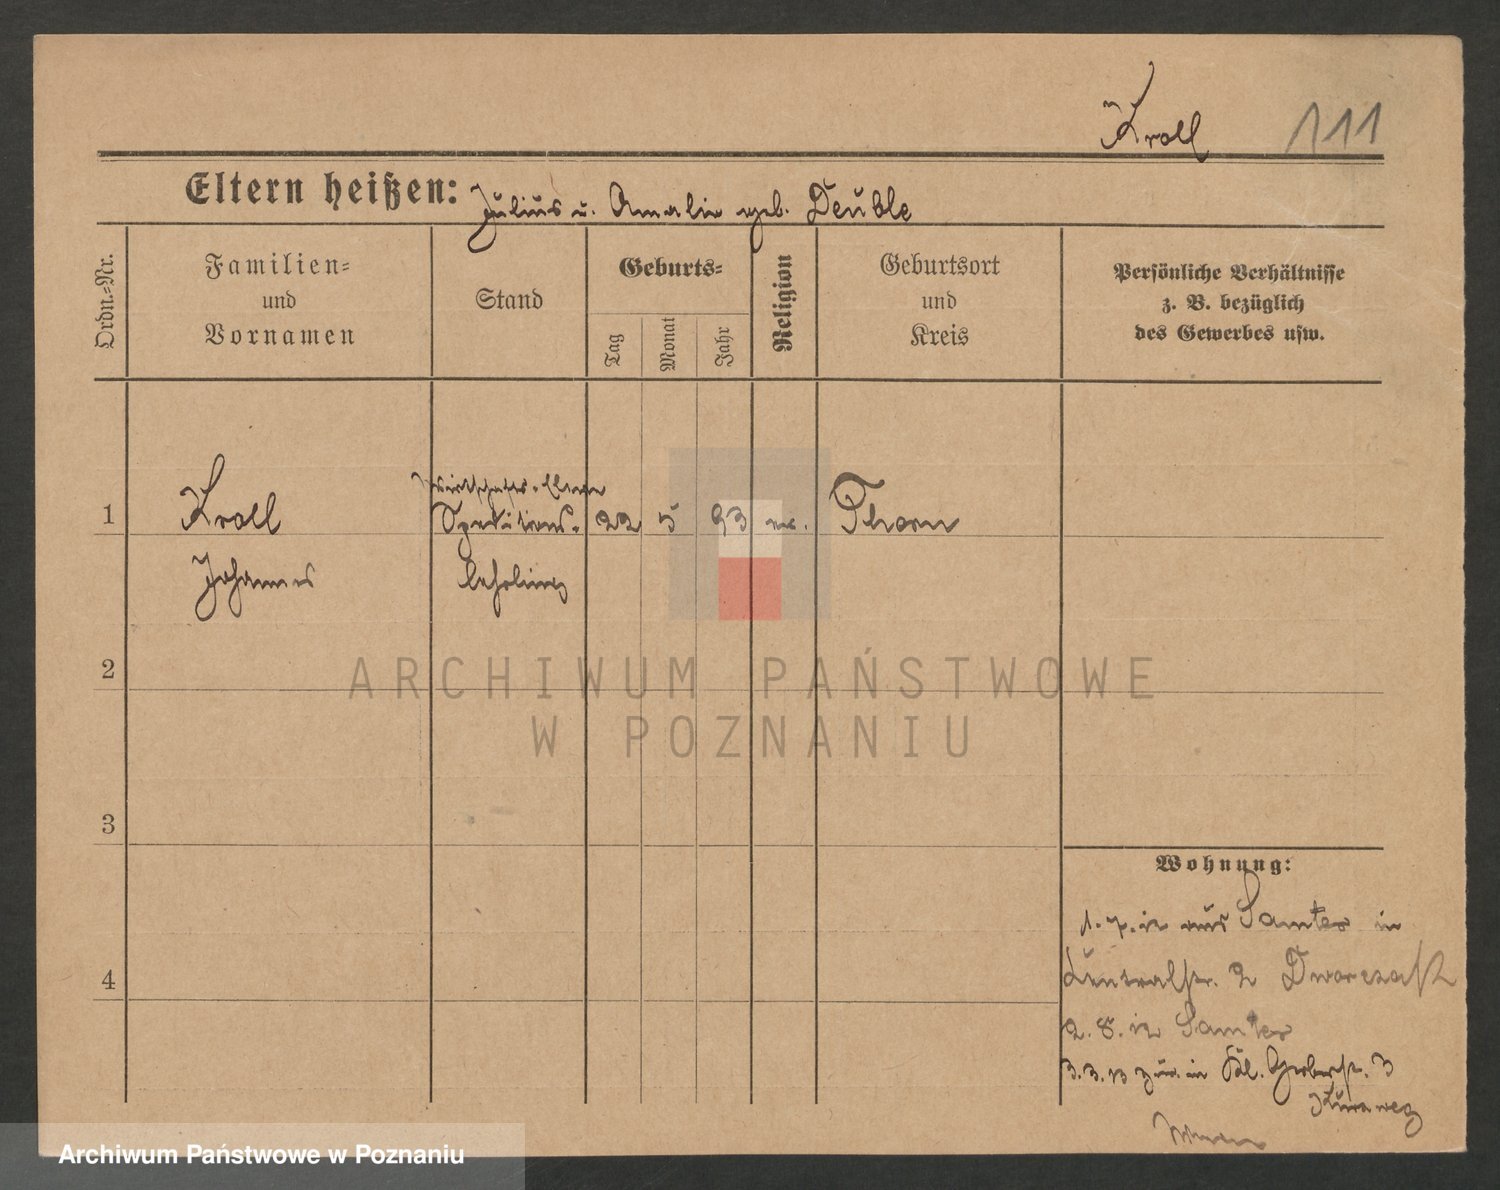 Kroll 111
Eltern heißen: Julius u. Amalie geb. Deuble
Ordn.-Nr.
Familien-
und
Vornamen
Stand
Geburts-
Tag
Monat
Jahr
Religion
Geburtsort
und
Kreis
Persönliche Verhältnisse
z. B. bezüglich
des Gewerbes usw.
Wirtschafts-Eleve
1 Kroll Speditions- 22 5 93 ev. Thorn
Johannes lehrling
2
ARCHIWUM PAŃSTWOWE
W POZNANIU
3
Wohnung:
1.7.12 aus Samter in
2
4
2.8.12 Samter
3.3.13 zur. in Gerberstr. 3
Archiwum Państwowe w Poznaniu